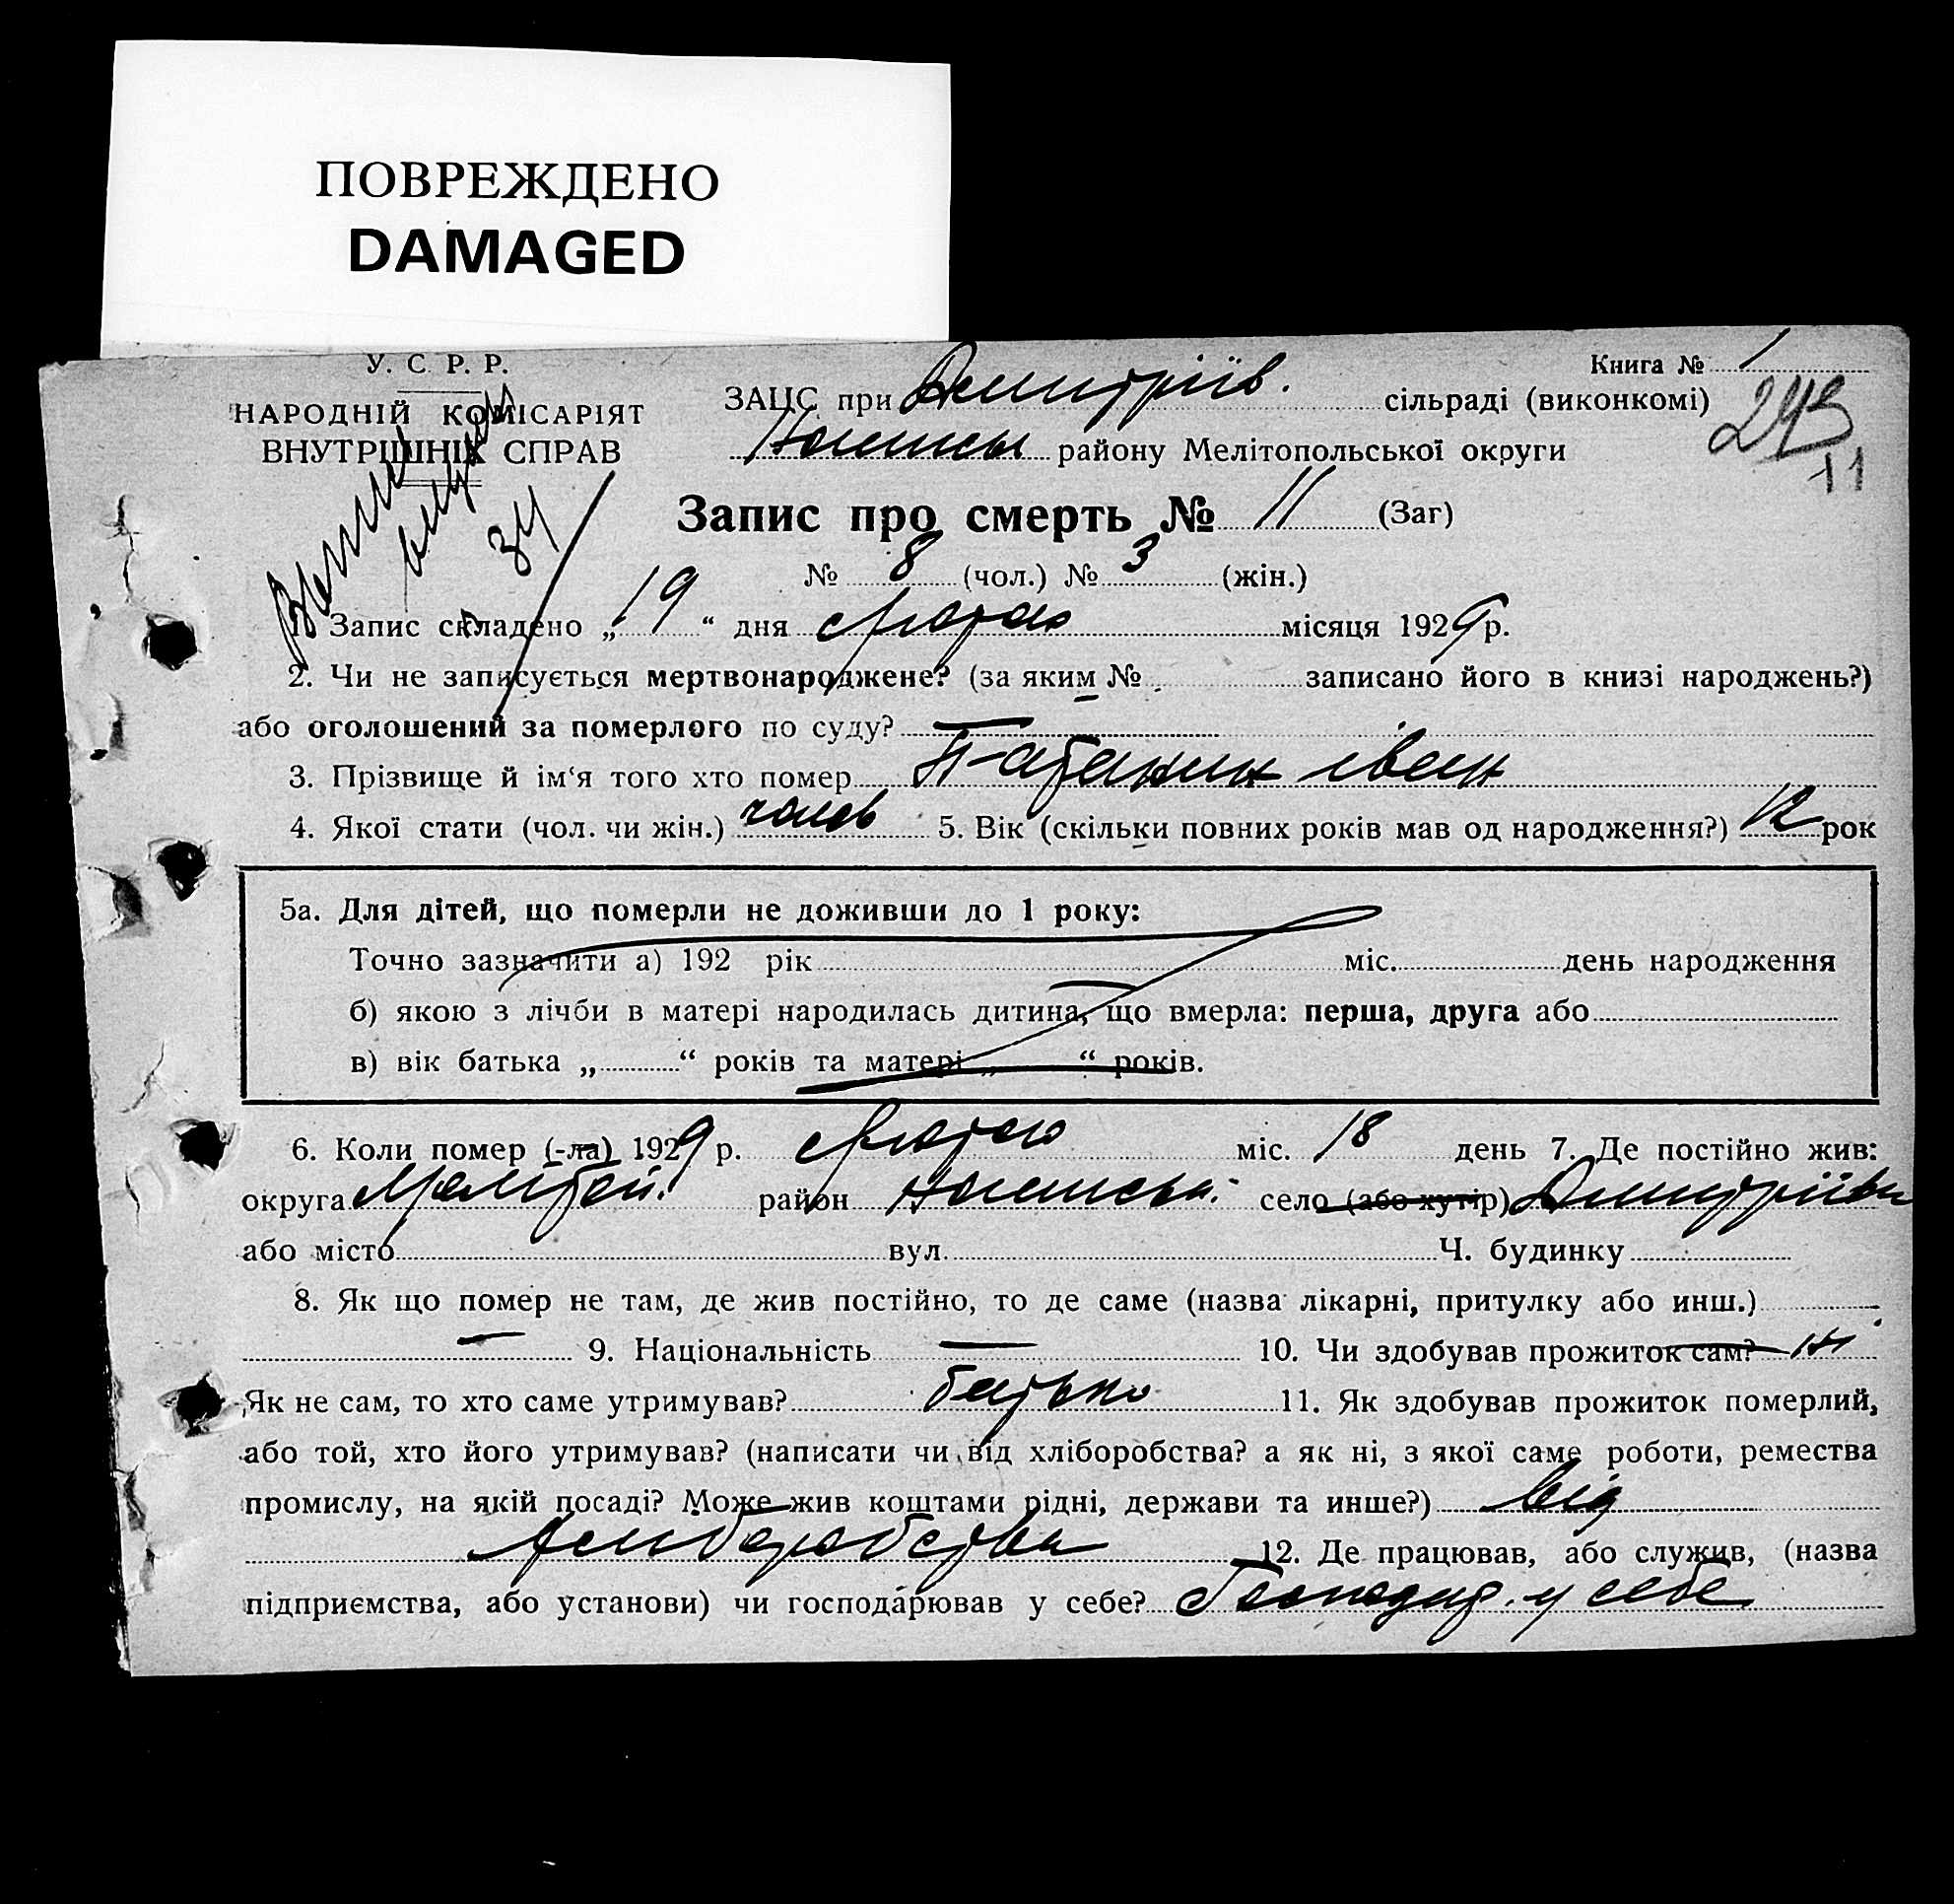 ПОВРЕЖДЕНО
DAMAGED
У. С. Р. Р.
НАРОДНІЙ КОМІСАРІЯТ
ВНУТРІШНІХ СПРАВ
Книга № 1
ЗАЦС при Дмитріїв. сільраді (виконкомі)
району Мелітопольської округи
11
34
Запис про смерть № 11 (Заг)
№ 8 (чол.) № 3 (жін.)
1. Запис складено „19“ дня лютого місяця 1929 р.
2. Чи не записується мертвонароджене? (за яким № записано його в книзі народжень?)
або оголошений за померлого по суду? —
3. Прізвище й ім‘я того хто помер Іван
4. Якої стати (чол. чи жін.) чолов 5. Вік (скільки повних років мав од народження?) 12 рок
5а. Для дітей, що померли не доживши до 1 року:
Точно зазначити а) 192 рік міс. день народження
б) якою з лічби в матері народилась дитина, що вмерла: перша, друга або
в) вік батька „ “ років та матері „ “ років.
6. Коли помер (-ла) 1929 р. лютого міс. 18 день 7. Де постійно жив:
округа Мелітоп. район село (або хутір) Дмитріївка
або місто вул. Ч. будинку
8. Як що помер не там, де жив постійно, то де саме (назва лікарні, притулку або инш.)
— 9. Національність — 10. Чи здобував прожиток сам? ні
Як не сам, то хто саме утримував? батько 11. Як здобував прожиток померлий,
або той, хто його утримував? (написати чи від хліборобства? а як ні, з якої саме роботи, ремества
промислу, на якій посаді? Може жив коштами рідні, держави та инше?) від
хліборобства 12. Де працював, або служив, (назва
підприємства, або установи) чи господарював у себе? Господар. у себе